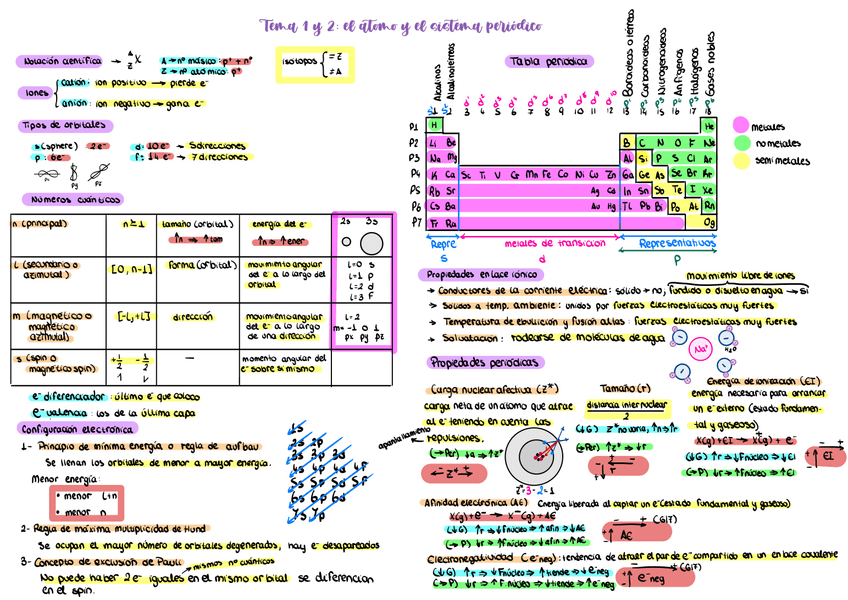 Tema 1 y 2: el átomo y el sistema periódico
Notación científica → A Z X
A → nº másico: p⁺ + nº
Z → nº atómico: p⁺
isótopos { = Z
≠ A
Iones
catión: ion positivo → pierde e⁻
anión: ion negativo → gana e⁻
Tipos de orbitales
s (sphere) 2e⁻
p: 6e⁻
d: 10e⁻ → 5 direcciones
f: 14e⁻ → 7 direcciones
Px Py Pz
Números cuánticos
n (principal) n ≥ 1 tamaño (orbital) energía del e⁻ 2s 3s
↑n → ↑tam ↑n → ↑ener
l (secundario o azimutal) [0, n-1] forma (orbital) movimiento angular del e⁻ a lo largo del orbital
l=0 s
l=1 p
l=2 d
l=3 F
m (magnético o magnético azimutal) [-l, +l] dirección movimiento angular del e⁻ a lo largo de una dirección
l=2
m= -1 0 1
px py pz
s (spin o magnético spin) +1/2 -1/2 — momento angular del e⁻ sobre si mismo
e⁻ diferenciador: último e⁻ que coloco
e⁻ valencia: los de la última capa
Configuración electrónica
1- Principio de mínima energía o regla de aufbau
Se llenan los orbitales de menor a mayor energía.
Menor energía:
• menor l+n
• menor n
1s
2s 2p
3s 3p 3d
4s 4p 4d 4f
5s 5p 5d 5f
6s 6p 6d
7s 7p
2- Regla de máxima multiplicidad de Hund
Se ocupan el mayor número de orbitales degenerados, hay e⁻ desapareados
3- Concepto de exclusión de Pauli
mismos nº cuánticos
No puede haber 2 e⁻ iguales en el mismo orbital se diferencian
en el spin.
Tabla periódica
Alcalinos
Alcalinotérreos
Boroideos o térreos
Carbonoideos
Nitrogenoideos
Anfígenos
Halógenos
Gases nobles
s¹ s² d¹ d² d³ d⁴ d⁵ d⁶ d⁷ d⁸ d⁹ d¹⁰ p¹ p² p³ p⁴ p⁵ p⁶
1 2 3 4 5 6 7 8 9 10 11 12 13 14 15 16 17 18
P1 H He
P2 Li Be B C N O F Ne
P3 Na Mg Al Si P S Cl Ar
P4 K Ca Sc Ti V Cr Mn Fe Co Ni Cu Zn Ga Ge As Se Br Kr
P5 Rb Sr Ag Cd In Sn Sb Te I Xe
P6 Cs Ba Au Hg Tl Pb Bi Po At Rn
P7 Fr Ra Og
metales
no metales
semimetales
Repre metales de transición Representativos
s d p
Propiedades enlace iónico
movimiento libre de iones
→ Conductores de la corriente eléctrica: sólido → no, fundido o disuelto en agua → si
→ Sólidos a temp. ambiente: unidos por fuerzas electroestáticas muy fuertes
→ Temperatura de ebullición y fusión altas: fuerzas electroestáticas muy fuertes
→ Solvatación: rodearse de moléculas de agua
Na⁺
H₂O
Propiedades periódicas
Carga nuclear afectiva (Z*)
carga neta de un átomo que atrae
al e⁻ teniendo en cuenta las
repulsiones.
apantallamiento
(→Per) ↓a → ↑z*
← z* +
Z*= 3 - 2 = 1
Tamaño (r)
distancia internuclear
2
(↓G) z* no varia, ↑n → ↑r
(→Per) ↑z* → ↓r
r
Energía de ionización (EI)
energía necesaria para arrancar
un e⁻ externo (estado fundamen-
tal y gaseoso)
X(g) + EI → X⁺(g) + e⁻
(↓G) ↑r → ↓Fnúcleo → ↓EI
(→P) ↓r → ↑Fnúcleo → ↑EI
EI
Afinidad electrónica (AE) Energía liberada al captar un e⁻ (estado fundamental y gaseoso)
X(g) + e⁻ → X⁻(g) + AE
(↓G) ↑r → ↓Fnúcleo → ↓afin → ↓AE
(→P) ↓r → ↑Fnúcleo → ↑afin → ↑AE
(G17)
AE
Electronegatividad (e⁻neg): tendencia de atraer el par de e⁻ compartido en un enlace covalente
(↓G) ↑r → ↓Fnúcleo → ↓tiende → ↓e⁻neg
(→P) ↓r → ↑Fnúcleo → ↑tiende → ↑e⁻neg
(G17)
e⁻neg